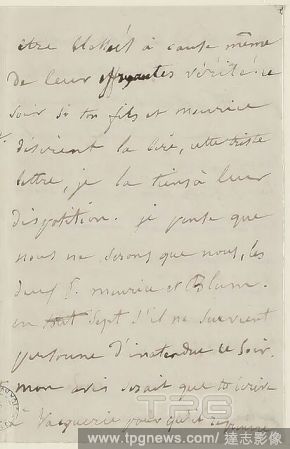 être blessés à cause même
de leur effrayantes vérité. ce
soir si ton fils et maurice
désirent la lire, cette triste
lettre, je la tiens à leur
disposition. je pense que
nous ne serons que nous, les
deux P. maurice et Blum.
en tout sept s'il ne survient
personne d'inatendue ce soir.
mon avis serait que tu écrive
à Vacquerie pour qu'il
TPG
www.tpgnews.com / 達志影像